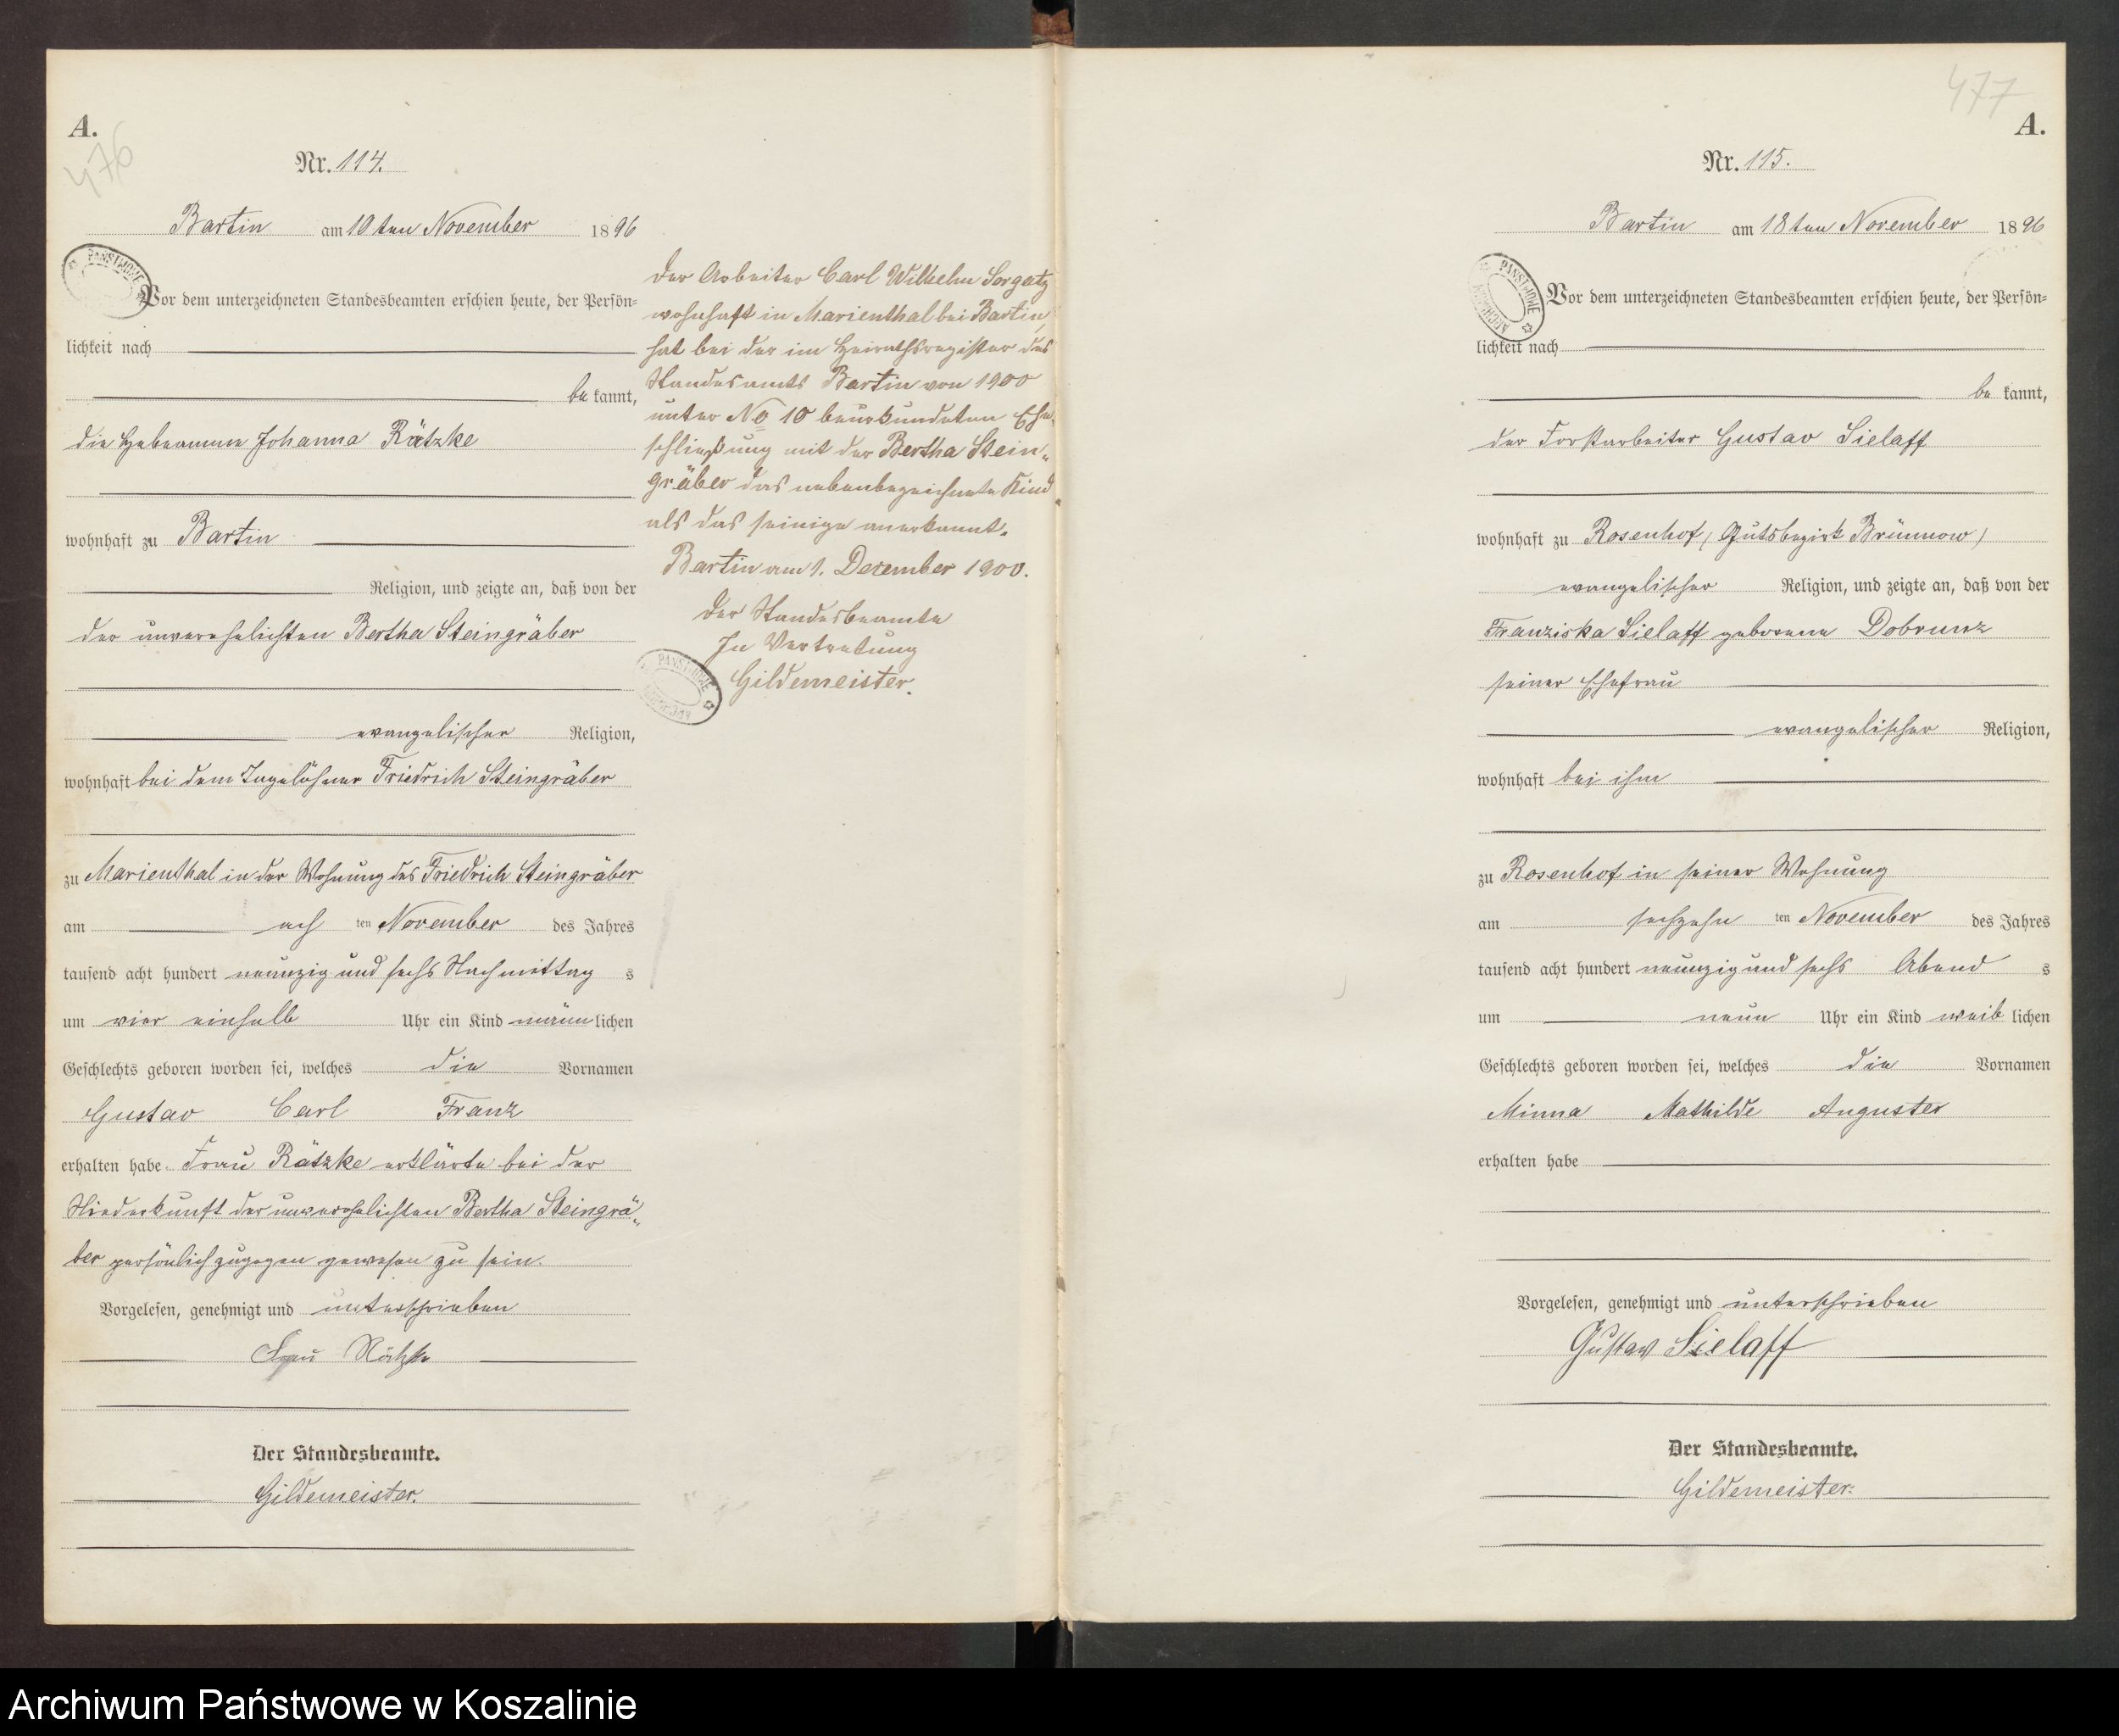 A.
476
Nr. 114.
Bartin am 10ten November 1896
Vor dem unterzeichneten Standesbeamten erschien heute, der Persön-
lichkeit nach
be kannt,
die Hebeamme Johanna Rätzke
wohnhaft zu Bartin
Religion, und zeigte an, daß von der
der unverehelichten Bertha Steingräber
evangelischer Religion,
wohnhaft bei dem Tagelöhner Friedrich Steingräber
zu Marienthal in der Wohnung des Friedrich Steingräber
am ach ten November des Jahres
tausend acht hundert neunzig und sechs Nachmittag s
um vier einhalb Uhr ein Kind männ lichen
Geschlechts geboren worden sei, welches die Vornamen
Gustav Carl Franz
erhalten habe. Frau Rätzke erklärte bei der
Niederkunft der unverehelichten Bertha Steingrä„
ber persönlich zugegen gewesen zu sein.
Vorgelesen, genehmigt und unterschrieben
Frau Rätzke
Der Standesbeamte.
Gildemeister.
Der Arbeiter Carl Wilhelm Sorgatz
wohnhaft in Marienthal bei Bartin,
hat bei der im Heirathsregister des
Standesamts Bartin von 1900
unter No 10 beurkundeten Ehe„
schließung mit der Bertha Stein„
gräber das nebenbezeichnete Kind
als das seinige anerkannt.
Bartin am 1. Dezember 1900.
Der Standesbeamte
In Vertretung
Gildemeister.
PAŃSTWOWE
477
A.
Nr. 115.
Bartin am 18ten November 1896
PAŃSTWOWE
Vor dem unterzeichneten Standesbeamten erschien heute, der Persön-
lichkeit nach
be kannt,
der Forstarbeiter Gustav Sielaff
wohnhaft zu Rosenhof (Gutsbezirk Brünnow)
evangelischer Religion, und zeigte an, daß von der
Franziska Sielaff geborene Dobrunz
seiner Ehefrau
evangelischer Religion,
wohnhaft bei ihm
zu Rosenhof in seiner Wohnung
am sechzehn ten November des Jahres
tausend acht hundert neunzig und sechs Abend s
um neun Uhr ein Kind weib lichen
Geschlechts geboren worden sei, welches die Vornamen
Minna Mathilde Auguster
erhalten habe
Vorgelesen, genehmigt und unterschrieben
Gustav Sielaff
Der Standesbeamte.
Gildemeister.
Archiwum Państwowe w Koszalinie